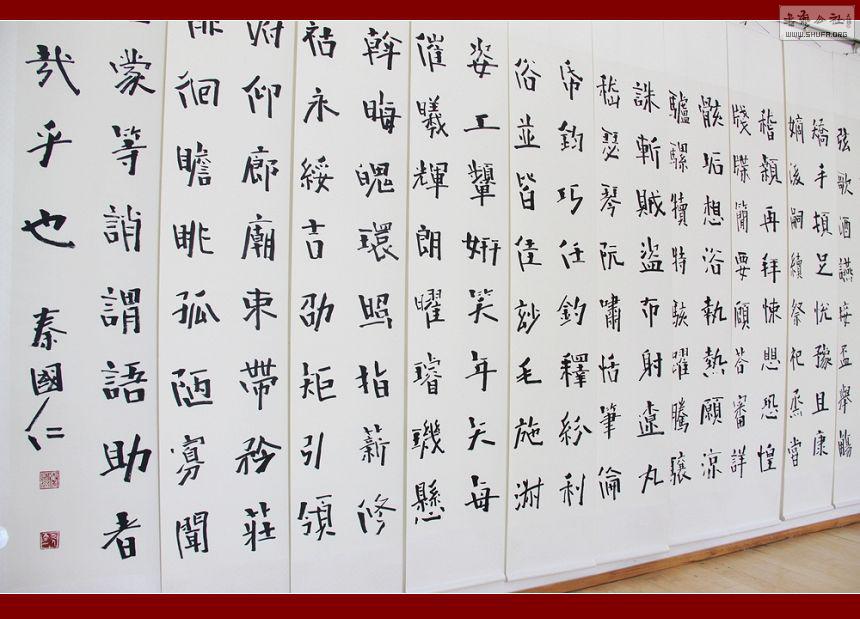 弦歌酒讌接盃舉觴
矯手頓足悅豫且康
嫡後嗣續祭祀烝嘗
稽顙再拜悚愳恐惶
牋牒簡要顧答審詳
骸垢想浴執熱願涼
驢騾犢特駭躍騰驤
誅斬賊盜布射遼丸
嵇瑟琴阮嘯恬筆倫
帋鈞巧任釣釋紛利
俗並皆佳玅毛施淑
姿工顰妍笑年矢每
催曦輝朗曜璿璣懸
斡晦魄環照指薪修
祜永綏吉劭矩引領
俯仰廊廟束帶矜莊
徘徊瞻眺孤陋寡聞
蒙等誚謂語助者
哉乎也 秦國仁
WWW.SHUFA.ORG